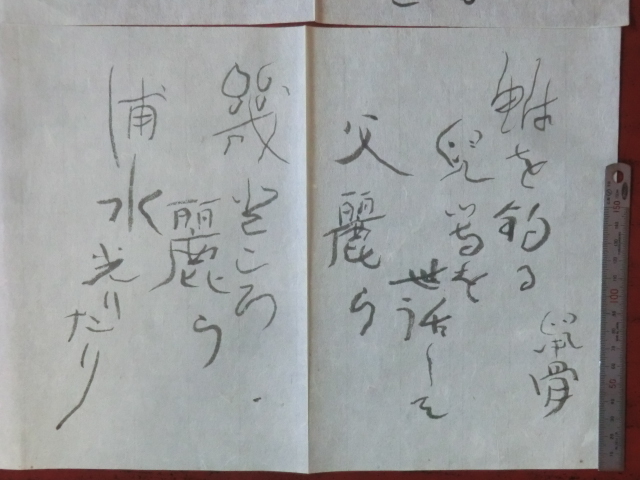 鼠骨
鮒を釣る
兒等を
世話して
父麗ら
幾ところ
麗ら
浦水光りたり